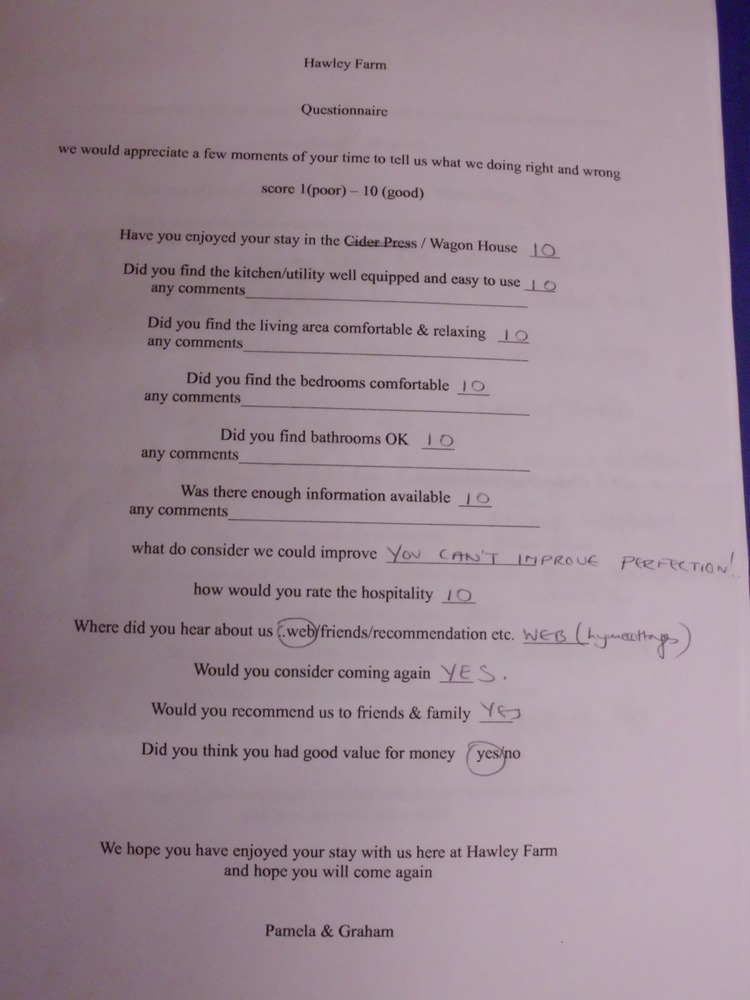 Hawley Farm
Questionnaire
we would appreciate a few moments of your time to tell us what we doing right and wrong
score 1(poor) – 10 (good)
Have you enjoyed your stay in the Cider Press / Wagon House 10
Did you find the kitchen/utility well equipped and easy to use 10
any comments
Did you find the living area comfortable & relaxing 10
any comments
Did you find the bedrooms comfortable 10
any comments
Did you find bathrooms OK 10
any comments
Was there enough information available 10
any comments
what do consider we could improve YOU CAN'T IMPROVE PERFECTION!
how would you rate the hospitality 10
Where did you hear about us (.web/friends/recommendation etc. WEB
Would you consider coming again YES.
Would you recommend us to friends & family YES
Did you think you had good value for money yes/no
We hope you have enjoyed your stay with us here at Hawley Farm
and hope you will come again
Pamela & Graham